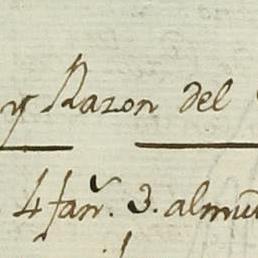 y Razon del
4 fan̄. 3. almu